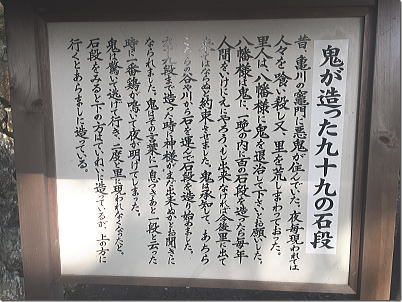 鬼が造った九十九の石段
昔、亀川の竈門に悪鬼が住んでいた。夜毎現われては
人々を喰い殺し又、里を荒しまわっておった。
里人は、八幡様に鬼を退治して下さいとお願いした。
八幡様は鬼に、一晩の内に百の石段を造ったら毎年
人間をいけにえにやろう。もし出来なければ今後里に出て
はならぬと約束させました。鬼は承知して、あちら
の谷や川から石を運んで石段を造り始めました。
九段まで造った時、神様が、まだ出来ぬかとお聞きに
なられました。鬼はその言葉に一息ついてあと一段と云った
時に一番鶏が鳴いて夜が明けてしまった。
鬼は驚いて逃げて行き、二度と里に現われなくなったと。
石段をみると下の方はていねいに造っているが、上の方に
行くとあらましに造っている。